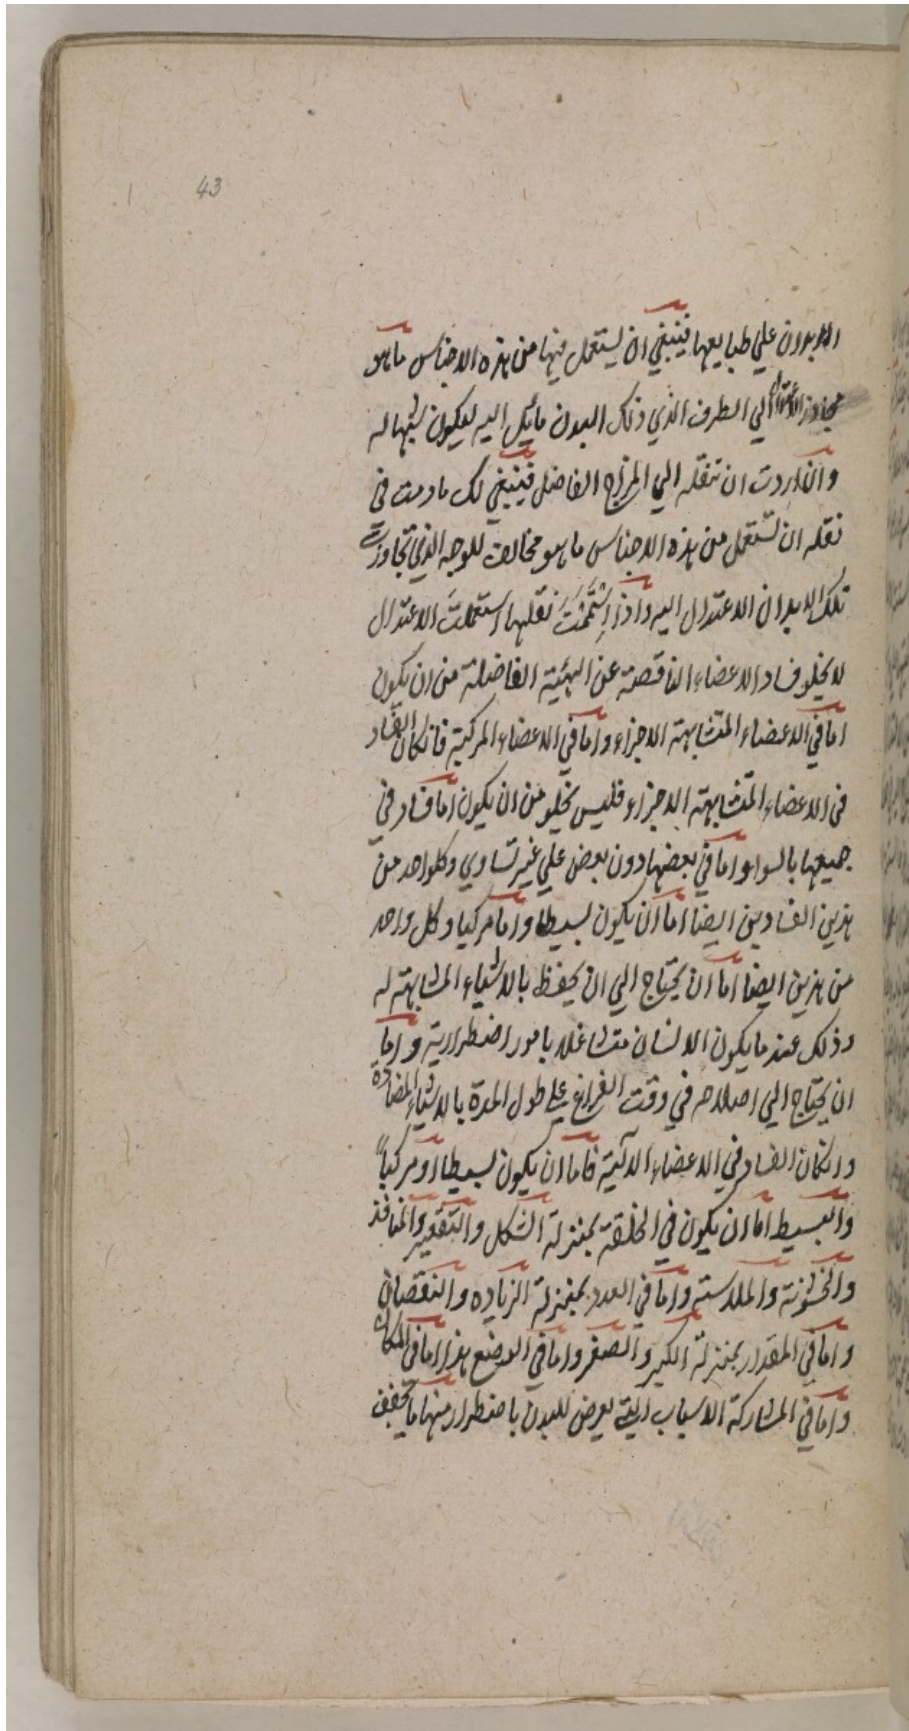 43
الابدان علي طبايعها فينبغي ان يستعمل فيها من هذه الاجناس ماهو
مجاوز الاعتدال الي الطرف الذي ذلك البدن مائل اليه ليكون شبيها له
وان اردت ان تنقله الي المزاج الفاضل فينبغي لك مادمت في
نقله ان تستعمل من هذه الاجناس ماهو مخالف للوجه الذي تجاوزت
تلك الابدان الاعتدال اليه واذا استتممت نقلها استعملت الاعتدال
لا يخلو فساد الاعضاء الناقصة عن الهيئية الفاضلة من ان يكون
اما في الاعضاء المتشابهة الاجزاء واما في الاعضاء المركبة فانكان الفساد
في الاعضاء المتشابهة الاجزاء فليس يخلو من ان يكون اما فساد في
جميعها بالسواء واما في بعضها دون بعض علي غير تساوي وكلواحد من
هذين الفسادين ايضا اما ان يكون بسيطا واما مركبا وكل واحد
من هذين ايضا اما ان يحتاج الي ان يحفظ بالاشياء المشابهة له
وذلك عند ما يكون الانسان متشاغلا بامور اضطرارية واما
ان يحتاج الي اصلاحه في وقت الفراغ علي طول المدة بالاشياء المضادة
وانكان الفساد في الاعضاء الآلية فاما ان يكون بسيطا او مركباً
والبسيط اما ان يكون في الخلقة بمنزلة الشكل والتقعير والمنافذ
والخشونة والملاسة واما في العدد بمنزلة الزياده والنقصان
واما في المقدار بمنزلة الكبر والصغر واما في الوضع هذا اما في المكان
واما في المشاركة الاسباب التي يعرض للبدن باضطرار منها ما يجفف